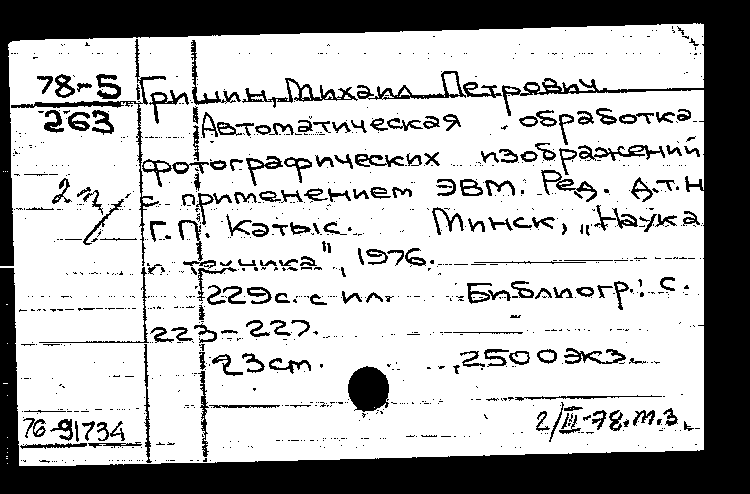 78-5 Гришин, Михаил Петрович.
263 Автоматическая обработка
фотографических изображений
2 с применением ЭВМ. Ред. д.т.н
Г.П. Катыс. Минск, „Наука
и техника", 1976.
229с. с ил. Библиогр.: с.
223-227.
23см. 2500экз.
76-91734 2/III-78.м.з.